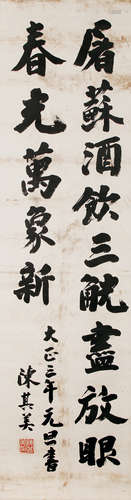 屠蘇酒飲三觥盡放眼
春光萬象新
大正三年元旦書
陳其美